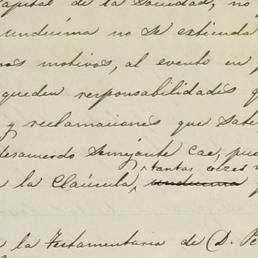 capital de la Sociedad, no
undécima no se extienda
motivos, al evento en
queden responsabilidades
y reclamaciones que
desacuerdo Semejante cae, pue
tantas veces
la Cláusula, undécima
la Testamentaria de D. Pe